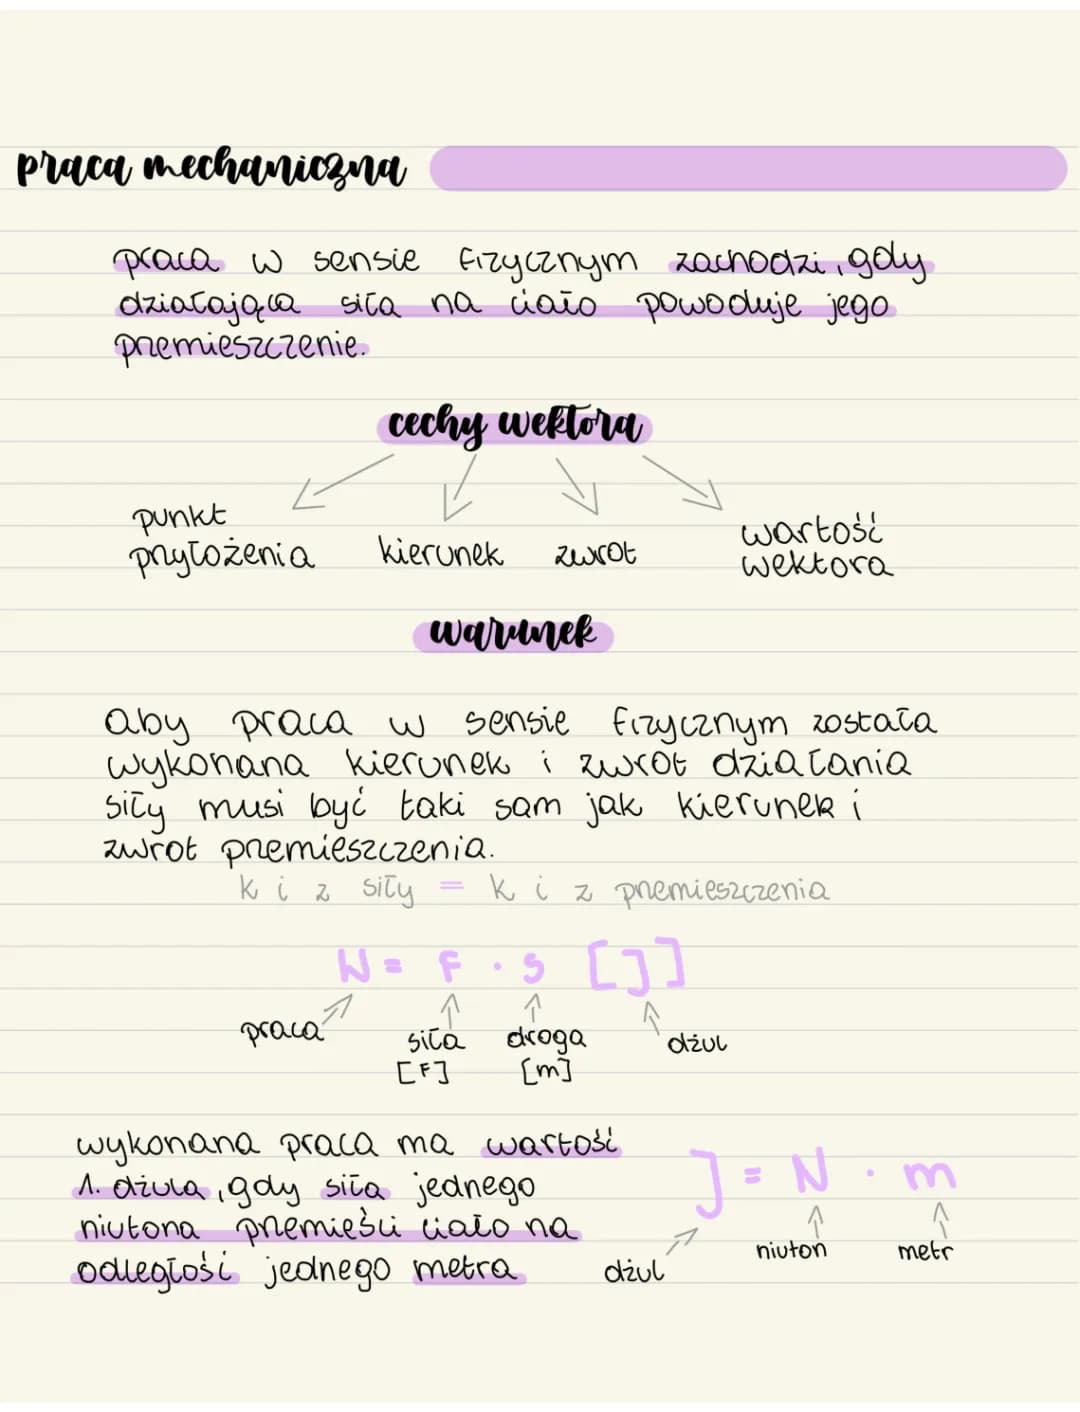 praca mechaniczna
praca w sensie fizycznym zachodzi, gdy
działająca siła na ciało powoduje jego
przemieszczenie.
cechy wektora
punkt
przyłożenia
kierunek
zwrot
wartość
wektora
warunek
aby praca w sensie fizycznym została
wykonana kierunek i zwrot działania
siły musi być taki sam jak kierunek i
zwrot przemieszczenia.
k i z siły = k i z przemieszczenia
W = F · s [J]
praca
siła
[F]
droga
[m]
dżul
wykonana praca ma wartość
1. dżula, gdy siła jednego
niutona przemieści ciało na
odległość jednego metra
J = N · m
dżul
niuton
metr